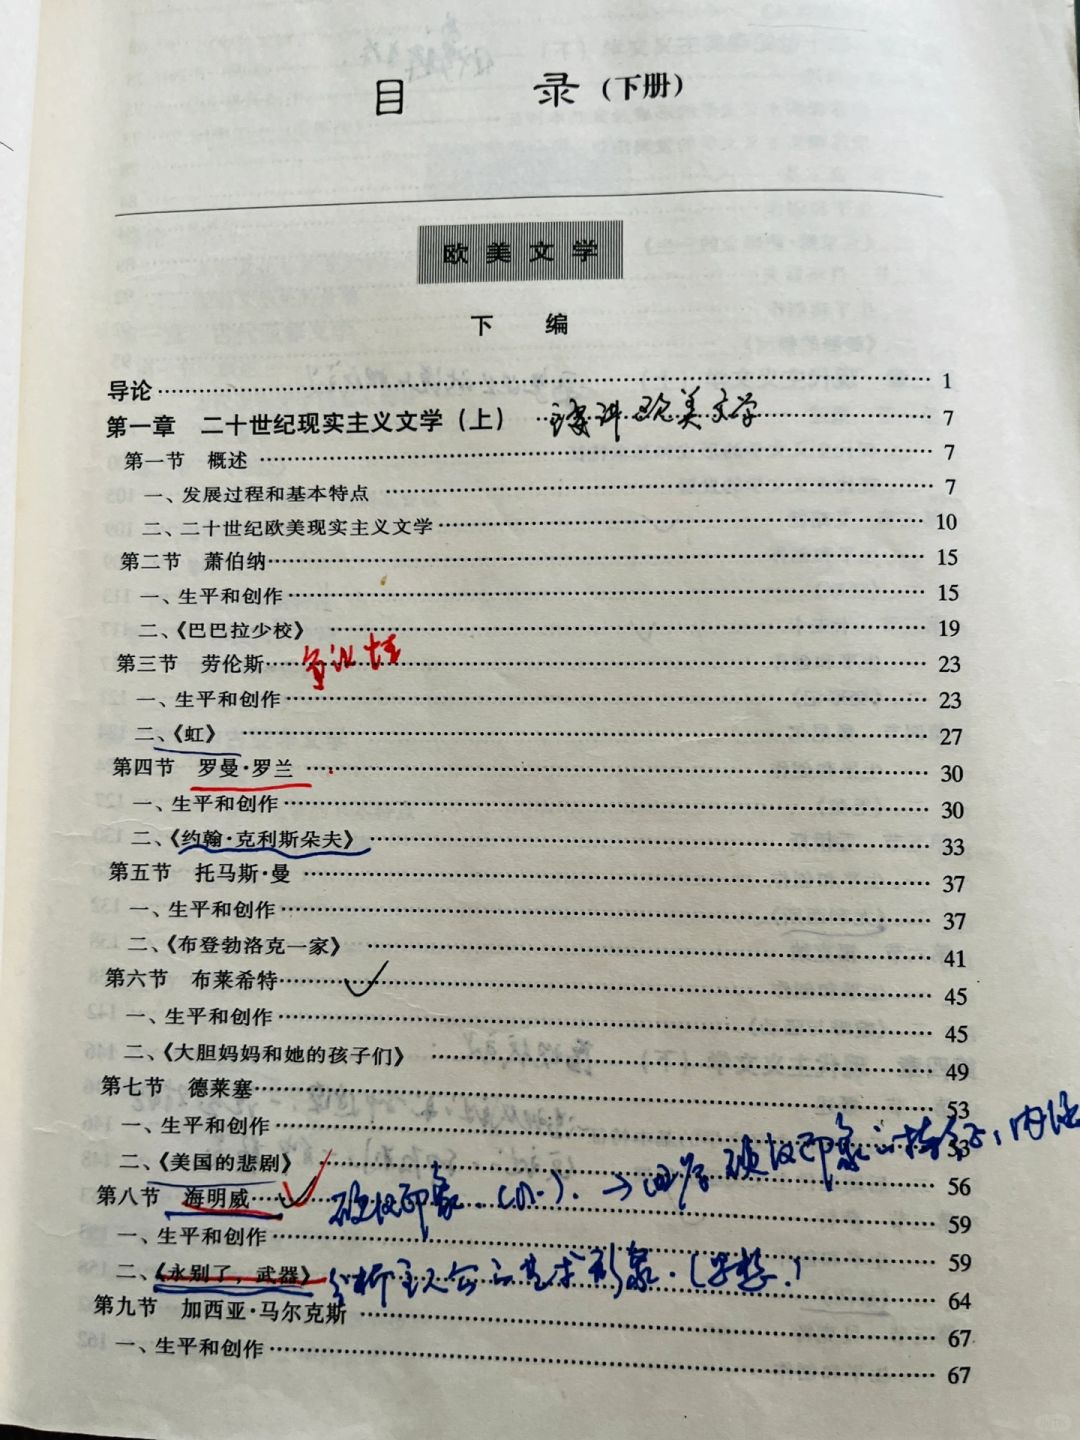 目 录（下册）
欧美文学
下 编
导论 1
第一章 二十世纪现实主义文学（上） 欧美文学 7
第一节 概述 7
一、发展过程和基本特点 7
二、二十世纪欧美现实主义文学 10
第二节 萧伯纳 15
一、生平和创作 15
二、《巴巴拉少校》 19
第三节 劳伦斯 争议性 23
一、生平和创作 23
二、《虹》 27
第四节 罗曼·罗兰 30
一、生平和创作 30
二、《约翰·克利斯朵夫》 33
第五节 托马斯·曼 37
一、生平和创作 37
二、《布登勃洛克一家》 41
第六节 布莱希特 45
一、生平和创作 45
二、《大胆妈妈和她的孩子们》 49
第七节 德莱塞 53
一、生平和创作 53
二、《美国的悲剧》 56
第八节 海明威 硬汉印象 硬汉印象 59
一、生平和创作 59
二、《永别了，武器》 分析主人公 形象 64
第九节 加西亚·马尔克斯 67
一、生平和创作 67